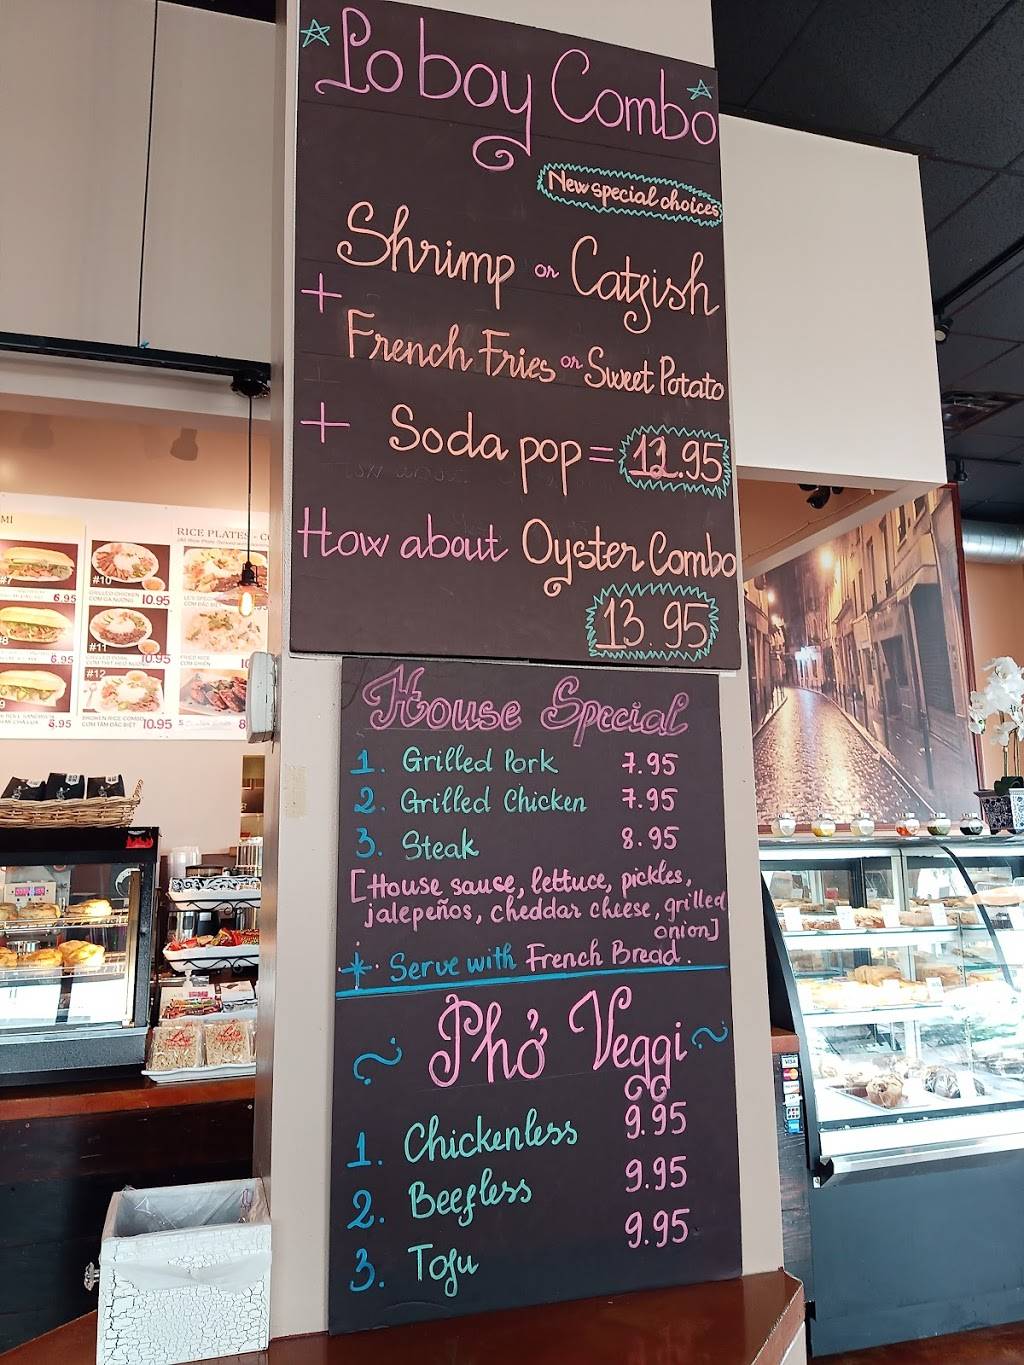 Po boy Combo
New special choices
Shrimp or Catfish
+
French Fries or Sweet Potato
+ Soda pop = 12.95
How about Oyster Combo
13.95
House Special
1. Grilled Pork 7.95
2. Grilled Chicken 7.95
3. Steak 8.95
[House sauce, lettuce, pickles,
jalepeños, cheddar cheese, grilled
onion]
* Serve with French Bread.
~ Phở Veggi ~
1. Chickenless 9.95
2. Beefless 9.95
3. Tofu 9.95
MÌ
#7
6.95
6.95
6.95
#10
GRILLED CHICKEN
CƠM GÀ NƯỚNG 10.95
#11
GRILLED PORK
CƠM THỊT HEO NƯỚNG 10.95
#12
BROKEN RICE COMBO
CƠM TẤM ĐẶC BIỆT 10.95
RICE PLATES - C
FRIED RICE
CƠM CHIÊN
10
VISA